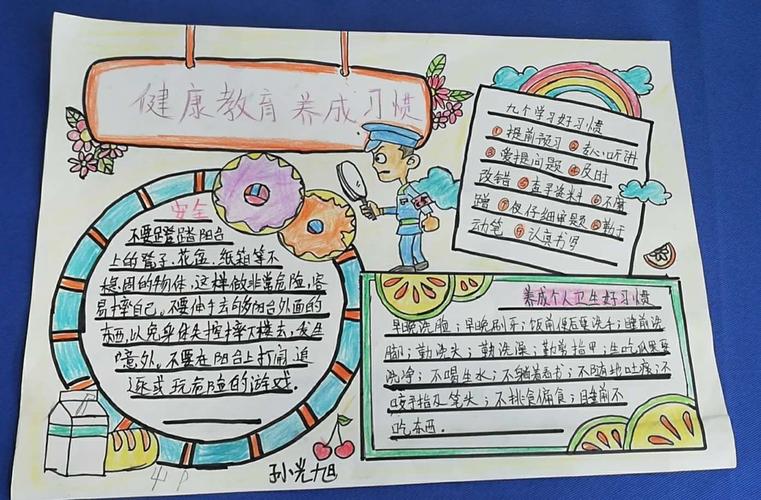 健康教育养成习惯
安全
不要踩踏阳台
上的凳子、花盆、纸箱等不
稳固的物体,这样做非常危险,容
易摔自己。不要伸手去够阳台外面的
东西,以免身体失控摔下楼去,发生
意外。不要在阳台上打闹、追
逐或玩危险的游戏.
九个学习好习惯
①提前预习②专心听讲
③爱提问题④及时
改错⑤查寻资料⑥不磨
蹭⑦仔仔细审题⑧勤于
动笔⑨认真书写
养成个人卫生好习惯
早晚洗脸;早晚刷牙;饭前便后要洗手;睡前洗
脚;勤洗头;勤洗澡;勤剪指甲;生吃瓜果要
洗净;不喝生水;不躺着看书;不随地吐痰;不
咬手指及笔头;不挑食偏食;睡前不
吃东西.
孙光旭